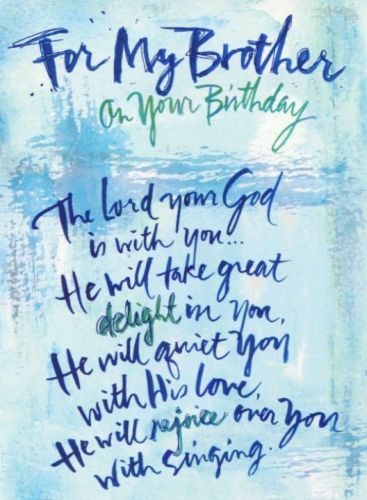 For My Brother
On Your Birthday
The Lord your God
is with you...
He will take great
delight in you,
He will quiet you
with His love,
He will rejoice over you
with singing.